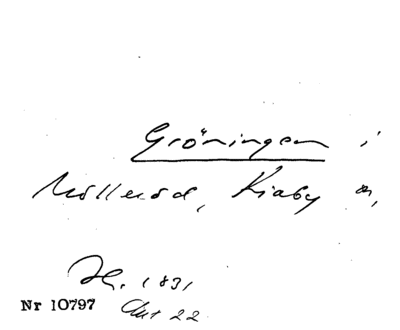 Gröningen i
Mölleröd, Kiaby sn,
Hr. 1831
Nr 10797 Akt 22